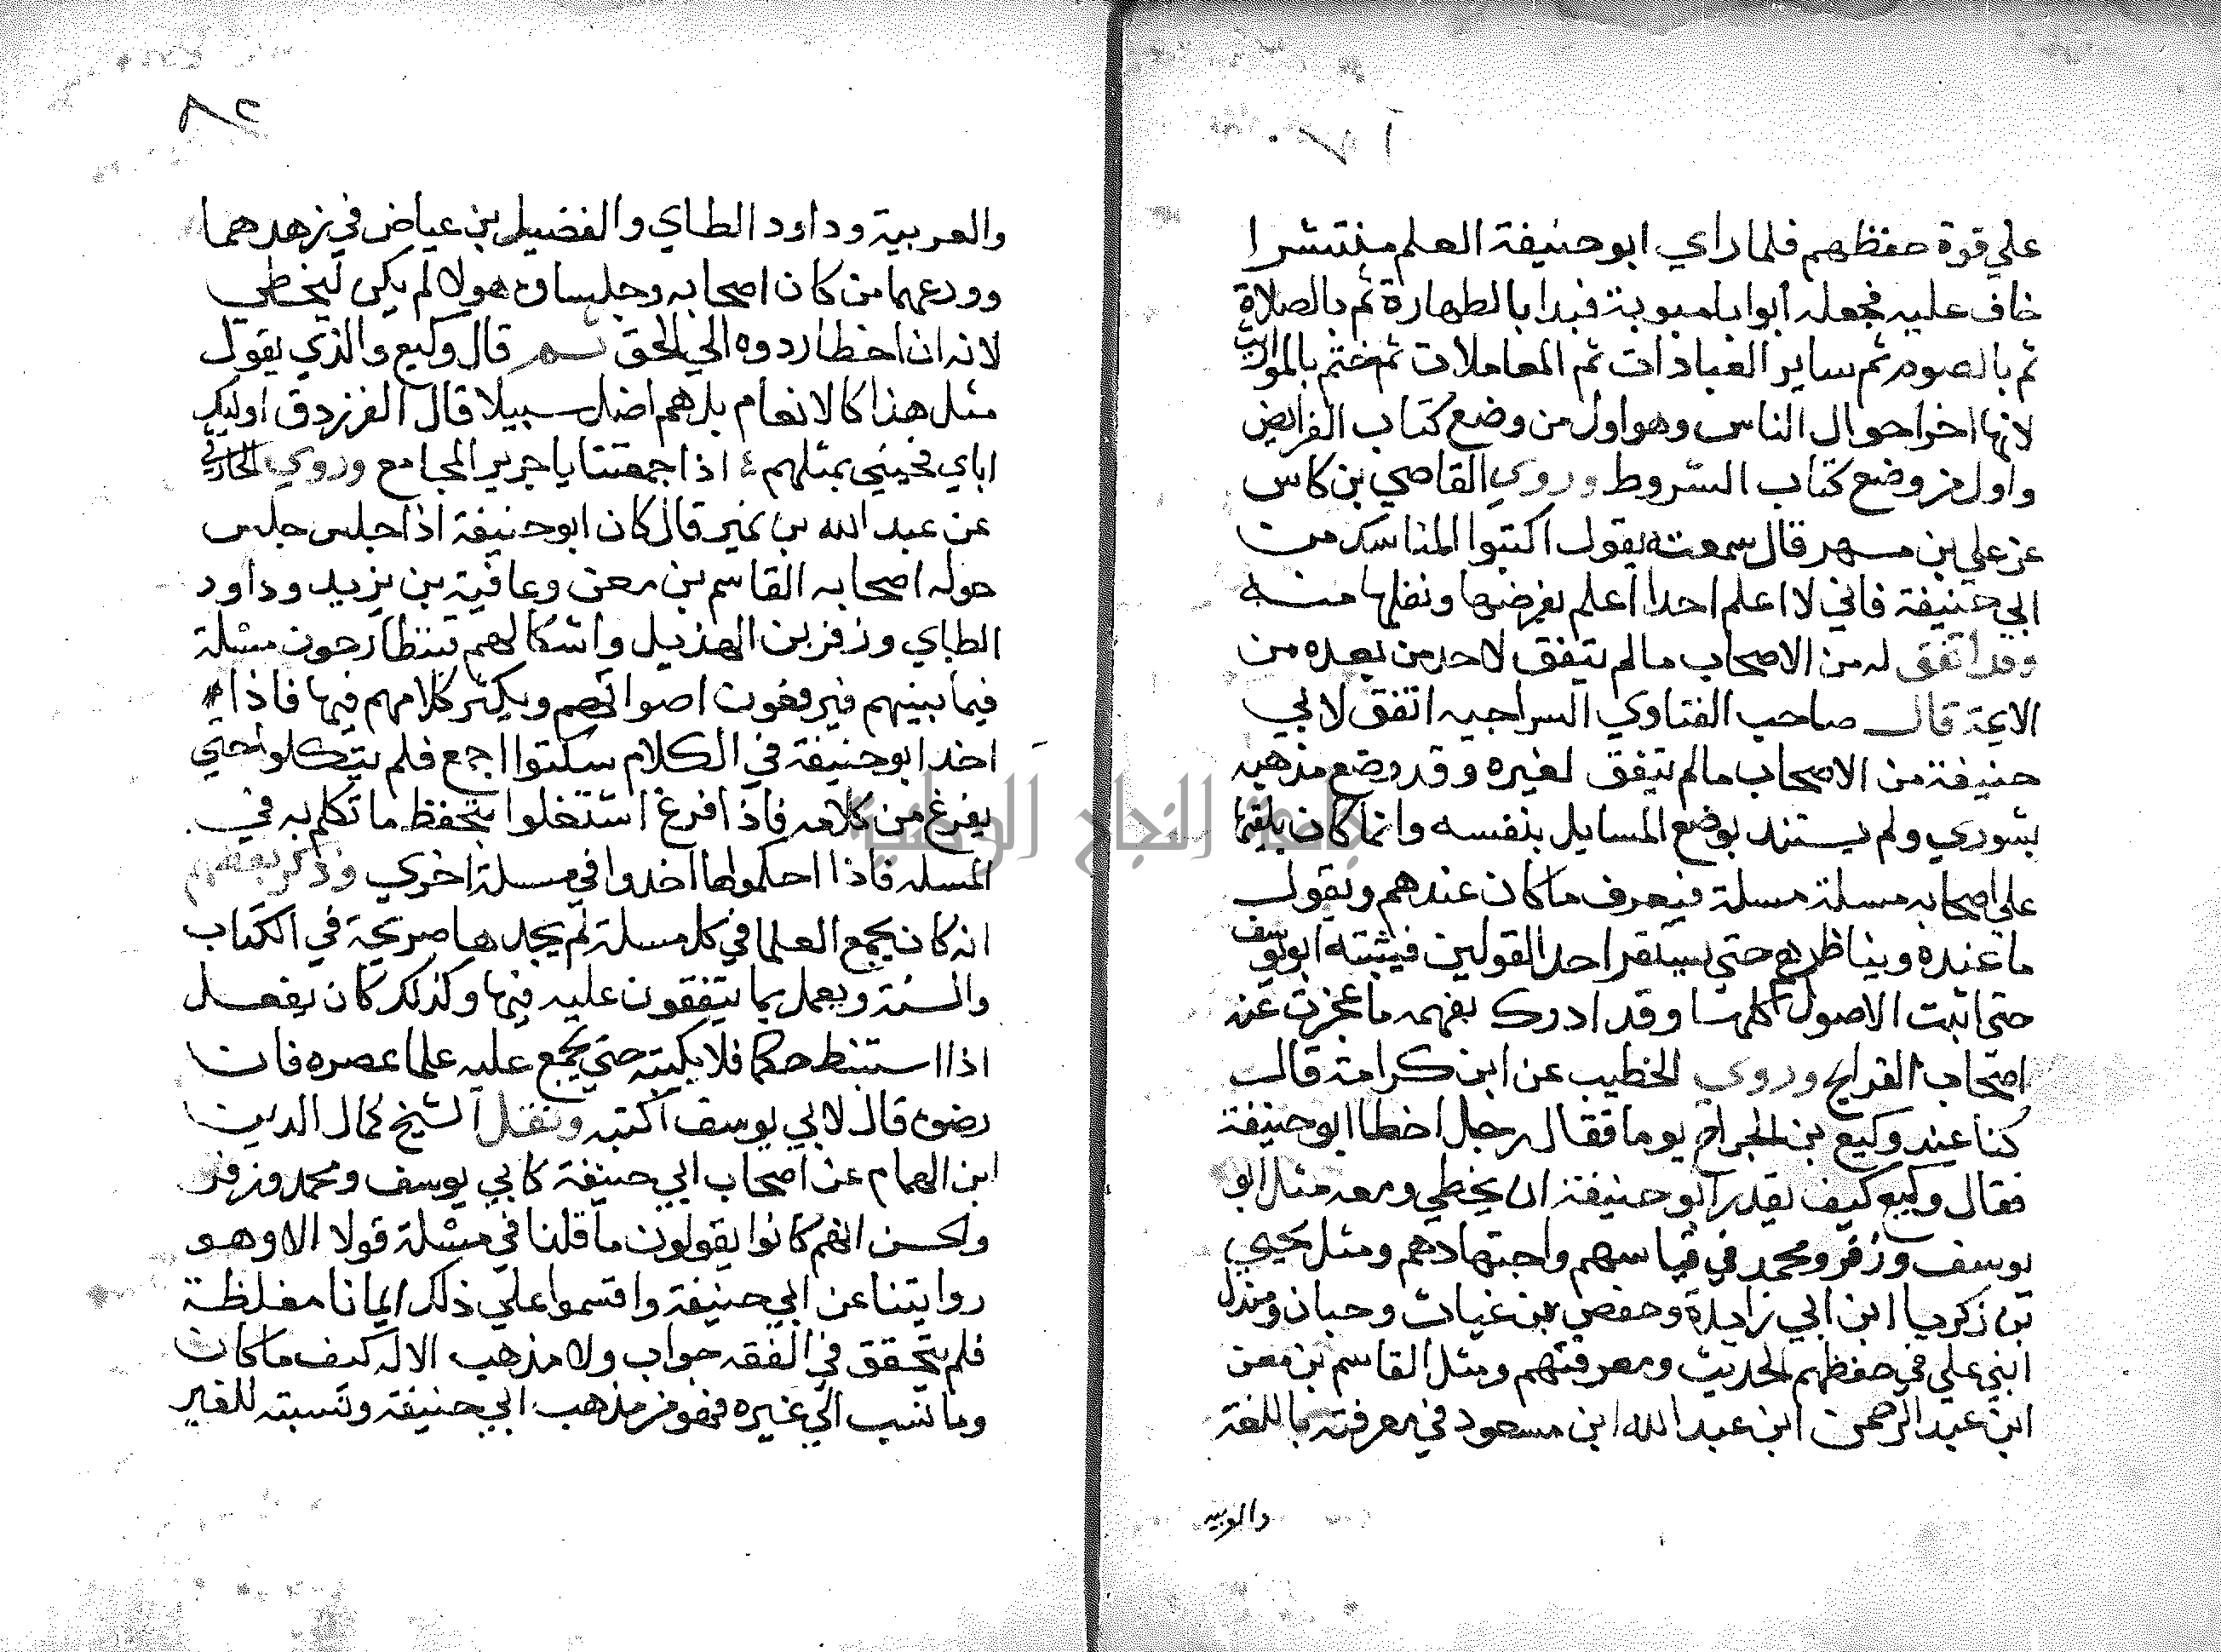 علي قوة حفظهم فلما راي ابو حنيفة العلم منتشرا
خاف عليه فجعله ابوابا مبوبة فبدا بالطهارة ثم بالصلاة
ثم بالصوم ثم ساير العبادات ثم المعاملات ثم ختم بالمواريث
لانها اخر احوال الناس وهو اول من وضع كتاب الفرايض
واول من وضع كتاب الشروط وروي القاضي بن كاس
عن علي بن مسهر قال سمعته يقول اكتبوا المناسك من
ابي حنيفة فاني لا اعلم احدا اعلم بفرضها ونفلها منه
وقد اتفق له من الاصحاب ما لم يتفق لاحد من بعده من
الايمة قال صاحب الفتاوي السراجيه اتفق لابي
حنيفة من الاصحاب ما لم يتفق لغيره وقد وضع مذهبه
بشوري ولم يستند بوضع المسايل بنفسه وانما كان يلقيها
علي اصحابه مسلة مسلة فيعرف ما كان عندهم ويقول
ما عنده ويناظرهم حتي يستقر احد القولين فيثبته ابو يوسف
حتي اثبت الاصول كلها وقد ادرك بفهمه ما عجزت عنه
اصحاب القرايح وروي الخطيب عن ابن كرامة قال
كنا عند وكيع بن الجراح يوما فقال رجل اخطا ابو حنيفة
فقال وكيع كيف يقدر ابو حنيفة ان يخطي ومعه مثل ابو
يوسف وزفر ومحمد في قياسهم واجتهادهم ومثل يحيي
بن زكريا ابن ابي زايدة وحفص بن غياث وحبان ومندل
ابني علي في حفظهم الحديث ومعرفتهم ومثل القاسم بن معن
ابن عبد الرحمن ابن عبد الله ابن مسعود في معرفته باللغة
والعربيه
٨٢
والعربية وداود الطاي والفضيل بن عياض في زهدهما
وورعهما من كان اصحابه وجلساوه هولا لم يكن ليخطي
لانه ان اخطا ردوه الي الحق ثم قال وكيع والذي يقول
مثل هذا كالانعام بل هم اضل سبيلا قال الفرزدق اوليك
اباي فجيني بمثلهم اذا جمعتنا يا جرير المجامع وروي الحارثي
عن عبد الله بن نمير قال كان ابو حنيفة اذا جلس جلس
حوله اصحابه القاسم بن معن وعافية بن يزيد وداود
الطاي وزفر بن الهذيل واشكالهم فيتطارحون مسئلة
فيما بينهم فيرفعون اصواتهم ويكثر كلامهم فيها فاذا
اخد ابو حنيفة في الكلام سكتوا اجمع فلم يتكلوا حتي
يفرغ من كلامه فاذا فرغ اشتغلوا بتحفظ ما تكلم به في
المسله فاذا احكموها اخدوا في مسلة اخري وذكر بعضهم
انه كان يجمع العلما في كل مسلة لم يجدها صريحة في الكتاب
والسنة ويعمل بما يتفقون عليه فيها وكذلك كان يفعل
اذا استنبط حكما فلا يكتبه حتي يجمع عليه علما عصره فان
رضوه قال لابي يوسف اكتبه ونقل الشيخ كمال الدين
ابن الهمام عن اصحاب ابي حنيفة كابي يوسف ومحمد وزفر
والحسن انهم كانوا يقولون ما قلنا في مسئلة قولا الا وهو
روايتنا عن ابي حنيفة واقسموا علي ذلك ايمانا مغلظة
فلم يتحقق في الفقه جواب ولا مذهب الا له كيف ما كان
وما نسب الي غيره فهو من مذهب ابي حنيفة ونسبته للغير
جامعة النجاح الوطنية